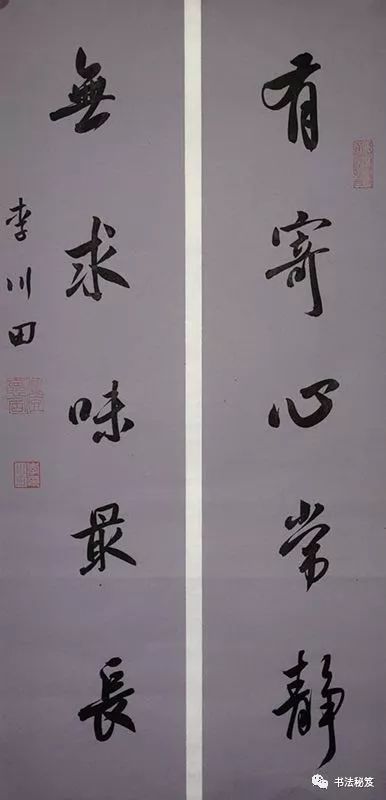 有寄心常静
無求味最長
李川田
书法秘笈